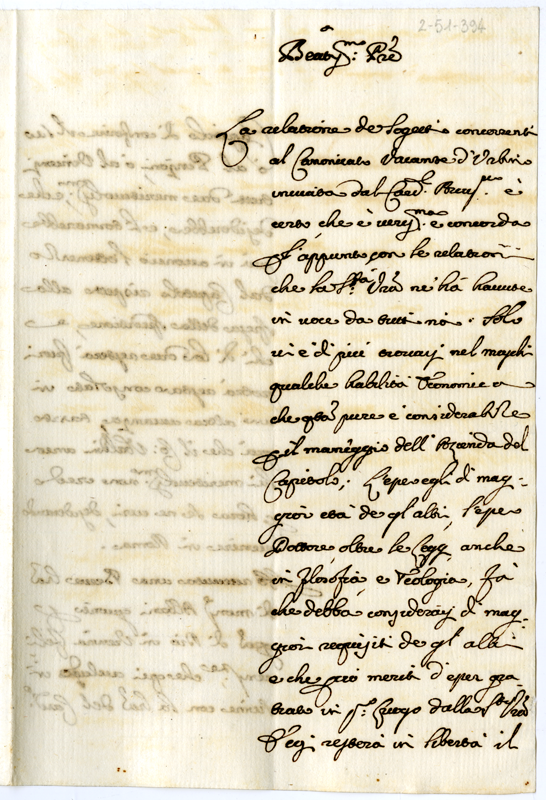 2-51-394
Beatiss.mo P.re
La relatione de Sogetti concorrenti
al Canonicato Vacante d'Urbino
inviata dal Card.l è
certo, che è veriss.ma e concorda
appunto con le relationi
che la S.tà V.ra ne hà havute
in voce da tutti noi. Solo
vi è di più trovarsi nel
qualche habilità Economica
che q.ta pure è considerabile
p il maneggio dell' Azenda del
Capitolo; L'esser egli di mag-
gior età de gl'altri, l'esser
Dottore, oltre le Leggi anche
in filosofia, e Teologia, fà
che debba considerarsi di mag-
giori requisiti de gl'altri
e che p ciò meriti d'esser gra-
tiato in p.o luogo dalla S.tà V.ra
resterà in libertà il